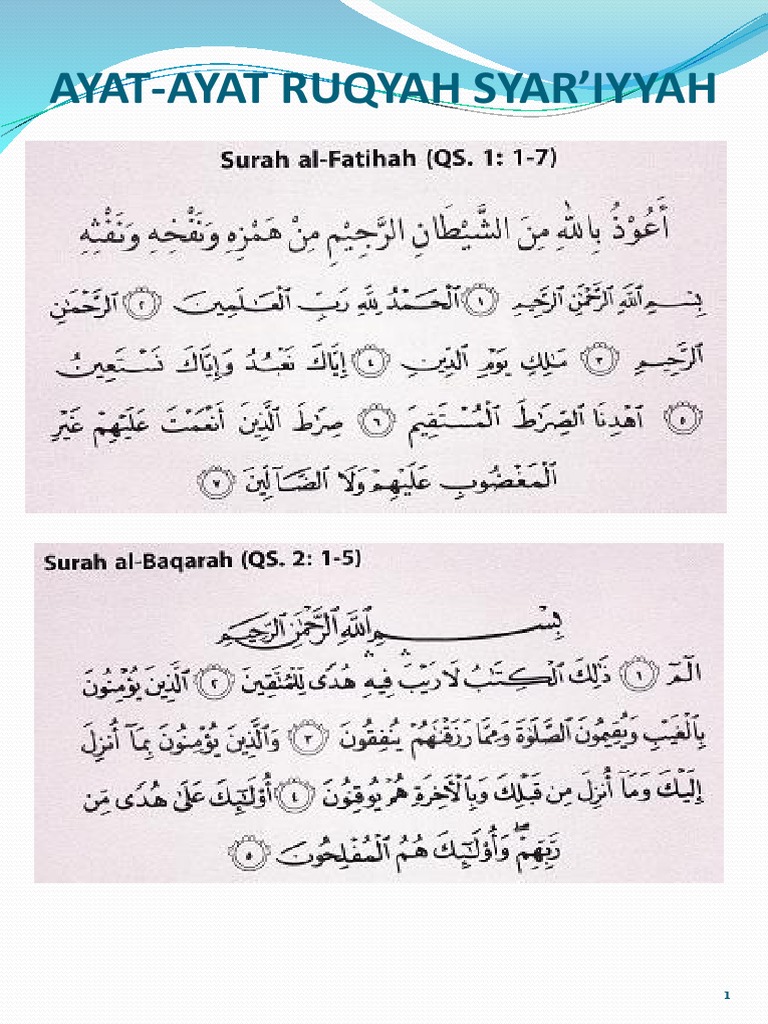 AYAT-AYAT RUQYAH SYAR’IYYAH
Surah al-Fatihah (QS. 1: 1-7)
أَعُوْذُ بِاللهِ مِنَ الشَّيْطَانِ الرَّجِيْمِ مِنْ هَمْزِهِ وَنَفْخِهِ وَنَفْثِهِ
بِسْمِ ٱللَّهِ ٱلرَّحْمَٰنِ ٱلرَّحِيمِ ١ ٱلْحَمْدُ لِلَّهِ رَبِّ ٱلْعَٰلَمِينَ ٢ ٱلرَّحْمَٰنِ
ٱلرَّحِيمِ ٣ مَٰلِكِ يَوْمِ ٱلدِّينِ ٤ إِيَّاكَ نَعْبُدُ وَإِيَّاكَ نَسْتَعِينُ
٥ ٱهْدِنَا ٱلصِّرَٰطَ ٱلْمُسْتَقِيمَ ٦ صِرَٰطَ ٱلَّذِينَ أَنْعَمْتَ عَلَيْهِمْ غَيْرِ
ٱلْمَغْضُوبِ عَلَيْهِمْ وَلَا ٱلضَّآلِّينَ ٧
Surah al-Baqarah (QS. 2: 1-5)
بِسْمِ ٱللَّهِ ٱلرَّحْمَٰنِ ٱلرَّحِيمِ
الٓمٓ ١ ذَٰلِكَ ٱلْكِتَٰبُ لَا رَيْبَ ۛ فِيهِ ۛ هُدًى لِّلْمُتَّقِينَ ٢ ٱلَّذِينَ يُؤْمِنُونَ
بِٱلْغَيْبِ وَيُقِيمُونَ ٱلصَّلَوٰةَ وَمِمَّا رَزَقْنَٰهُمْ يُنفِقُونَ ٣ وَٱلَّذِينَ يُؤْمِنُونَ بِمَآ أُنزِلَ
إِلَيْكَ وَمَآ أُنزِلَ مِن قَبْلِكَ وَبِٱلْءَاخِرَةِ هُمْ يُوقِنُونَ ٤ أُو۟لَٰٓئِكَ عَلَىٰ هُدًى مِّن
رَّبِّهِمْ ۖ وَأُو۟لَٰٓئِكَ هُمُ ٱلْمُفْلِحُونَ ٥
1